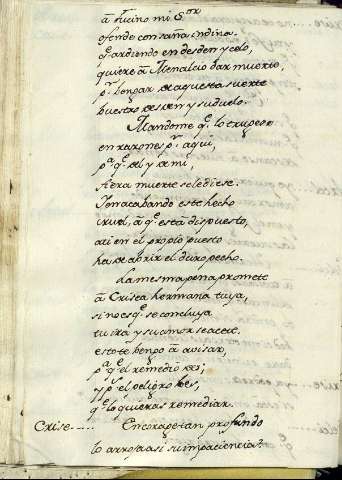 â Lucino mi S.or
ofende con saña indina.
q.e ardiendo en desden y celo,
quiere â Menalcio dar muerte,
p.r bengar de aquesta suerte
buestro desden y su duelo.
Mandome q.e lo truxese
en razones p.r aqui,
p.a q.e del y de mi,
fiera muerte se le diese.
I en acabando este hecho
cruel, â q.e està dispuesto,
asi en el propio puesto
ha de abrir el duro pecho.
La mesma pena promete
â Crisea hermana tuya,
si no es q.e se concluya
tu ira y su amor se acete.
esto te bengo â avisar,
p.a q.e el remedio des;
y p.s el peligro bes,
q.e lo quieras remediar.
Crise..... En coraçe tan profundo
lo arrosa asi su impaciencia?